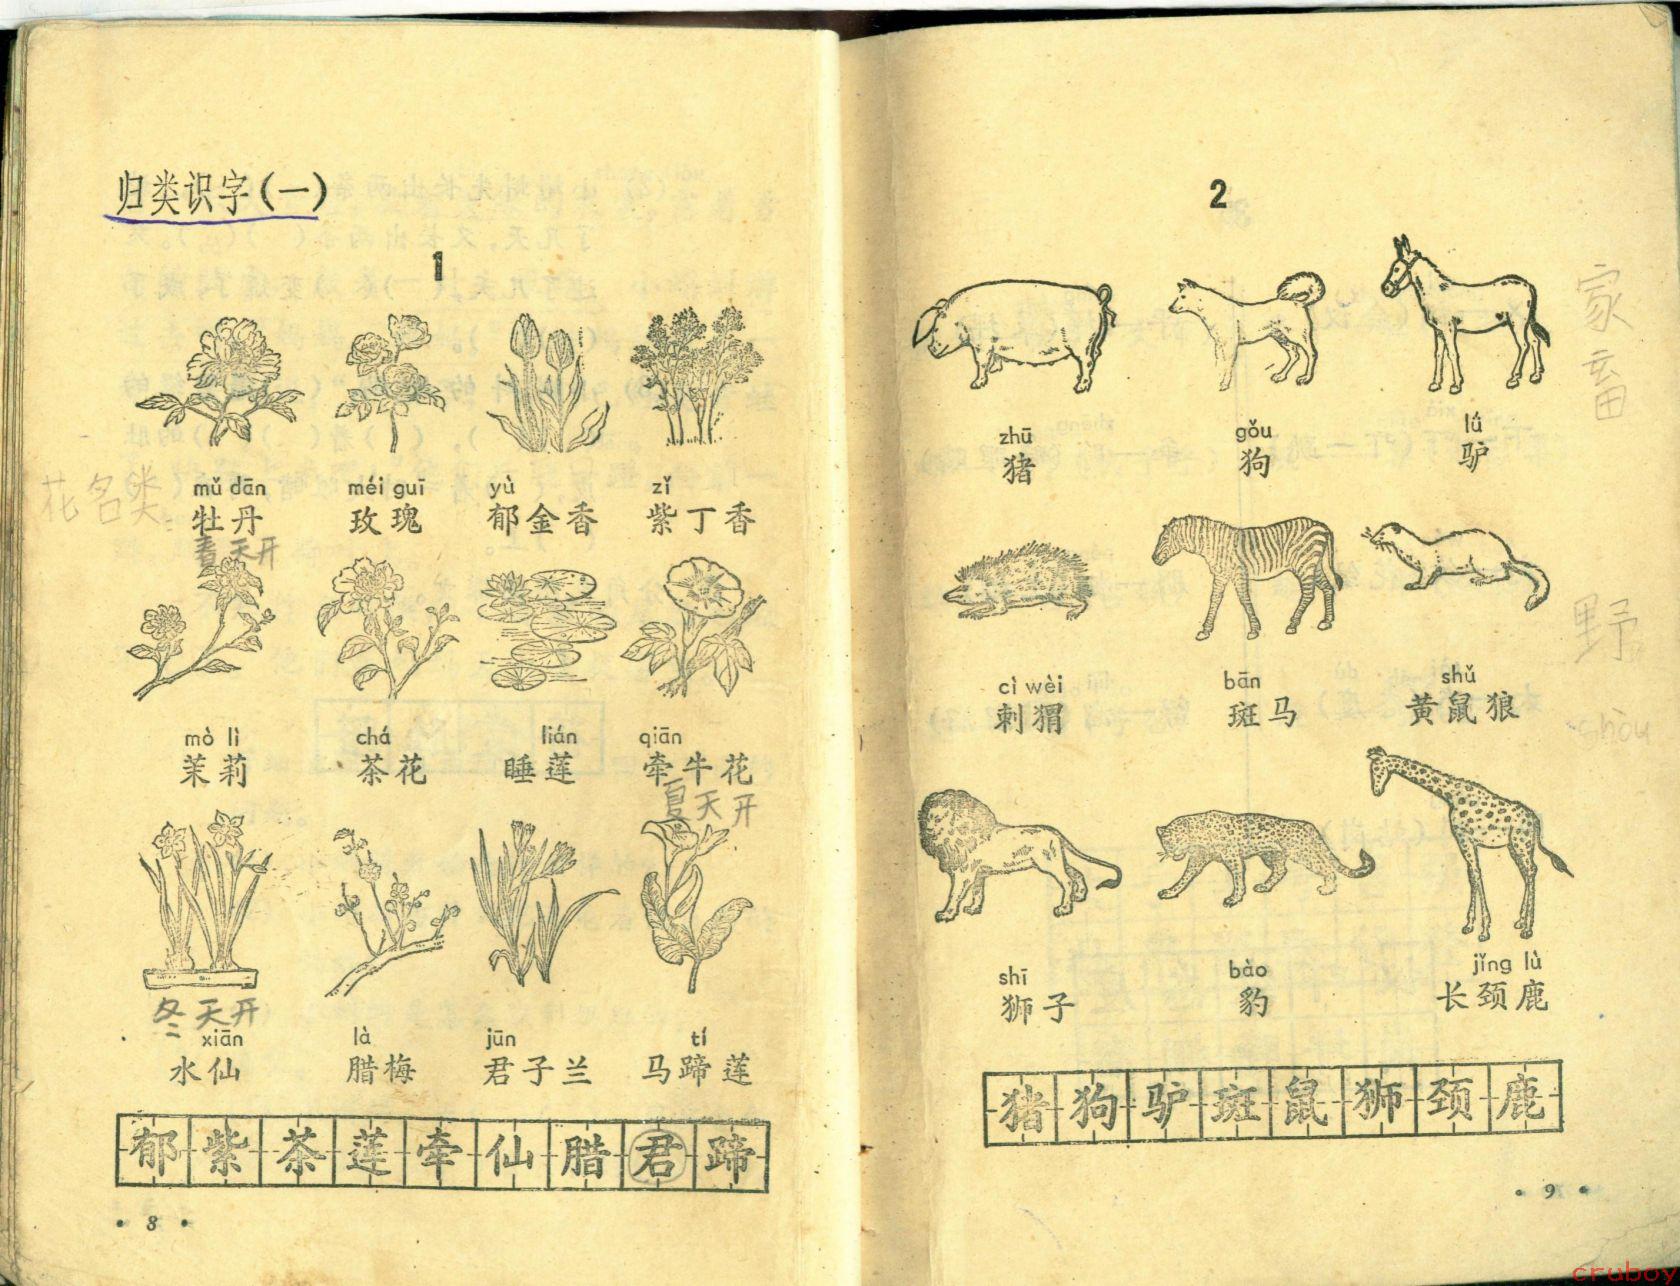 归类识字(一)
1
mǔ dān méi guī yù zǐ
牡丹 玫瑰 郁金香 紫丁香
花名类
春天开
mò lì chá lián qiān
茉莉 茶花 睡莲 牵牛花
夏天开
冬天开
xiān là jūn tí
水仙 腊梅 君子兰 马蹄莲
郁紫茶莲牵仙腊君蹄
• 8 •
2
家畜
zhū gǒu lǘ
猪 狗 驴
野
shòu
cì wèi bān shǔ
刺猬 斑马 黄鼠狼
shī bào jǐng lù
狮子 豹 长颈鹿
猪狗驴斑鼠狮颈鹿
• 9 •
cruboy